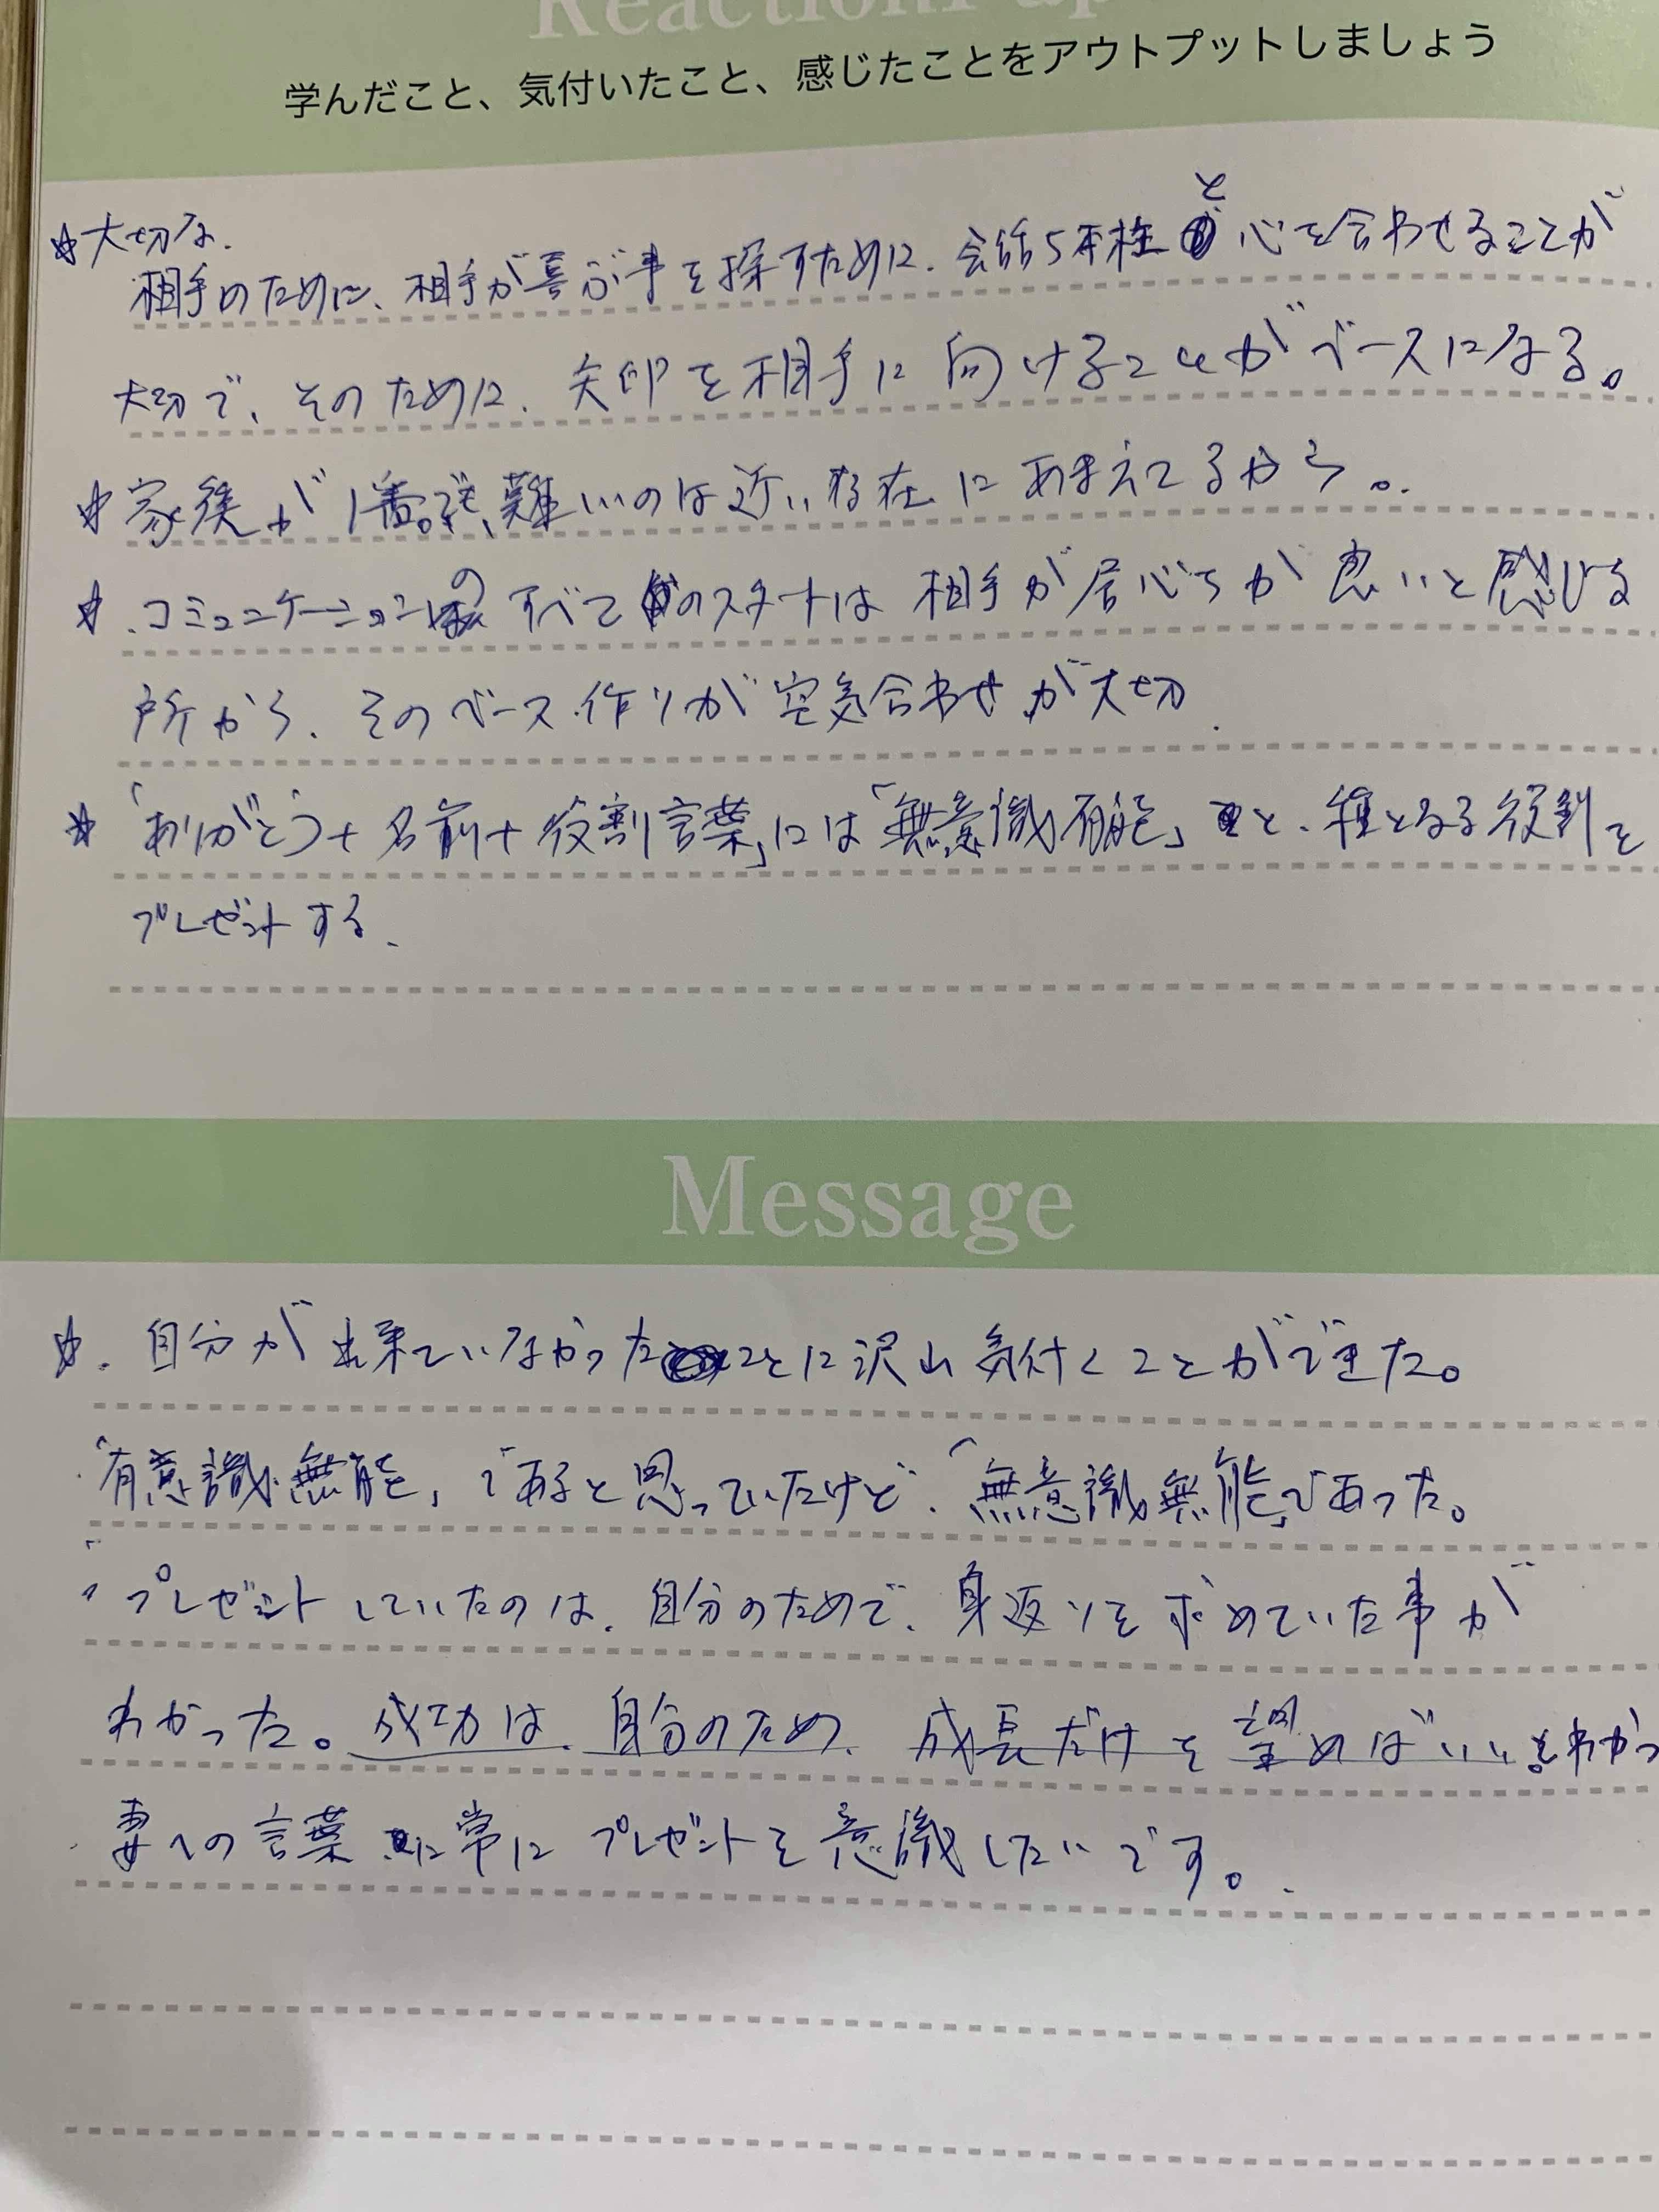 Reaction Pap
学んだこと、気付いたこと、感じたことをアウトプットしましょう
☆大切な
相手のために、相手が喜ぶ事を探すために、会話5本柱と心を合わせることが
大切で、そのために、矢印を相手に向けることがベースになる。
☆家族が1番難しいのは近い存在にあまえてるから。
☆コミュニケーションのすべてのスタートは相手が居心ちが良いと感じる
所から、そのベース作りが空気合わせが大切
☆「ありがとう+名前+役割言葉」には「無意識有能」と、種となる役割を
プレゼントする、
Message
☆自分が出来ていなかったことに沢山気付くことができた。
「有意識無能」であると思っていたけど、「無意識無能」であった。
プレゼントしていたのは、自分のためで、見返りを求めていた事が
わかった。成功は、自分のため、成長だけを望めばいいとわかっ
妻への言葉に常にプレゼントを意識したいです。